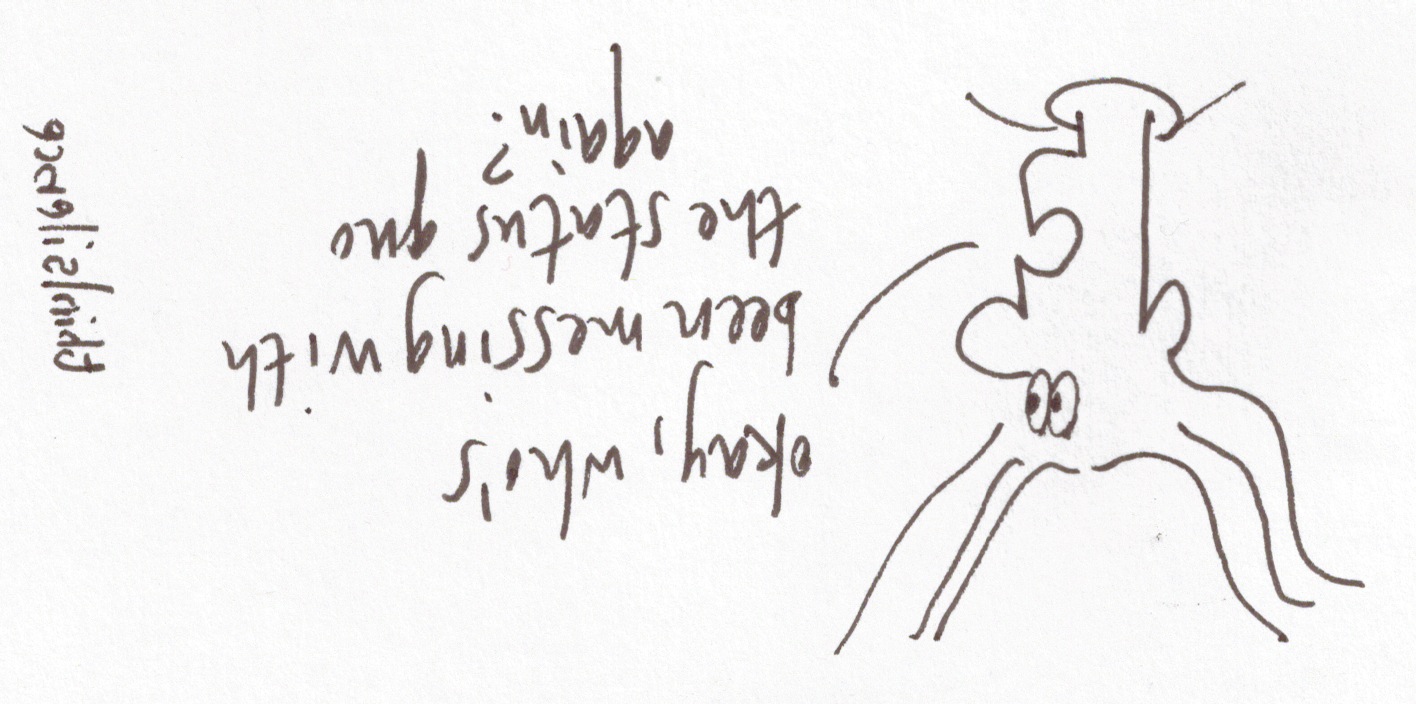 okay, who's
been messing with
the status quo
again?